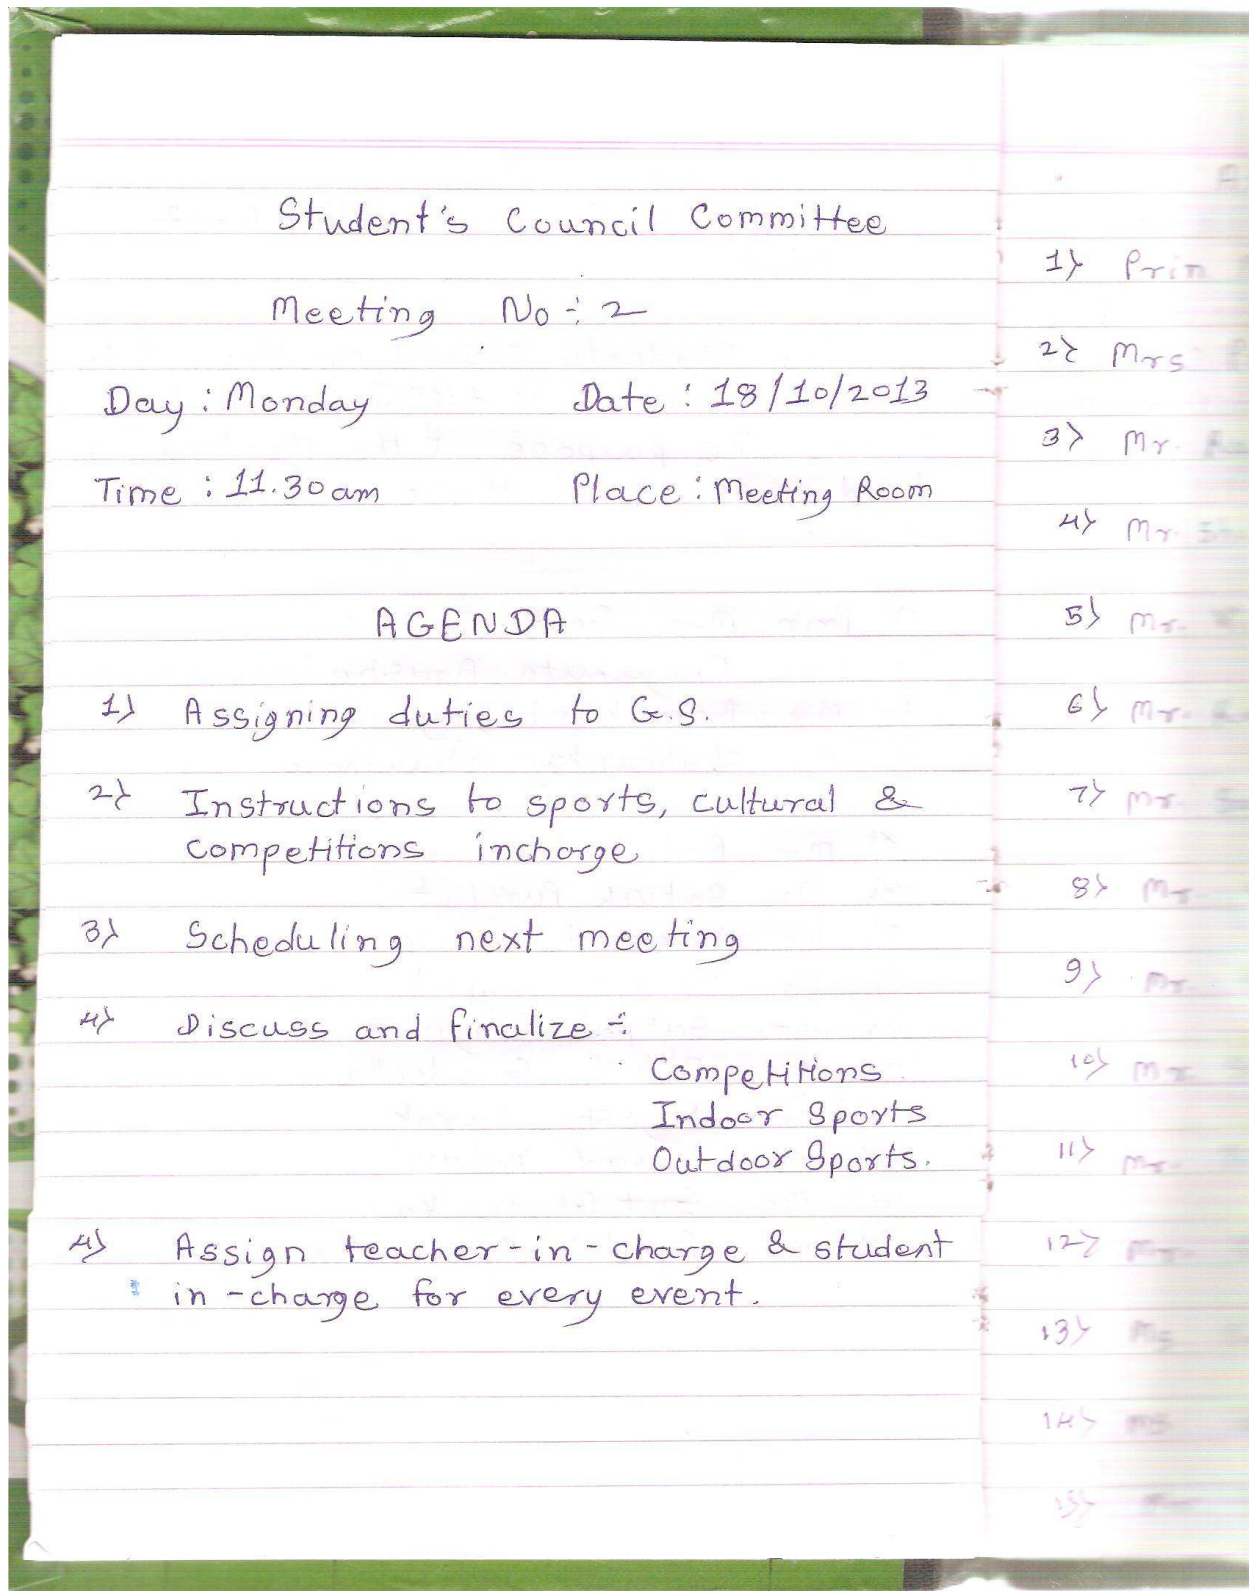 Student's Council Committee
Meeting No ÷ 2
Day : Monday Date : 18/10/2013
Time : 11.30 am Place : Meeting Room
AGENDA
1) Assigning duties to G.S.
2) Instructions to sports, cultural &
competitions incharge
3) Scheduling next meeting
4) Discuss and finalize ÷
Competitions
Indoor Sports
Outdoor Sports.
4) Assign teacher-in-charge & student
in-charge for every event.
1) Prin
2) Mrs
3) Mr.
4) Mr.
5) Mr.
6) Mr.
7) Mr.
8) Mr.
9) Mr.
10) Mr.
11) Mr.
12) Mr.
13) Ms
14) Ms
15)